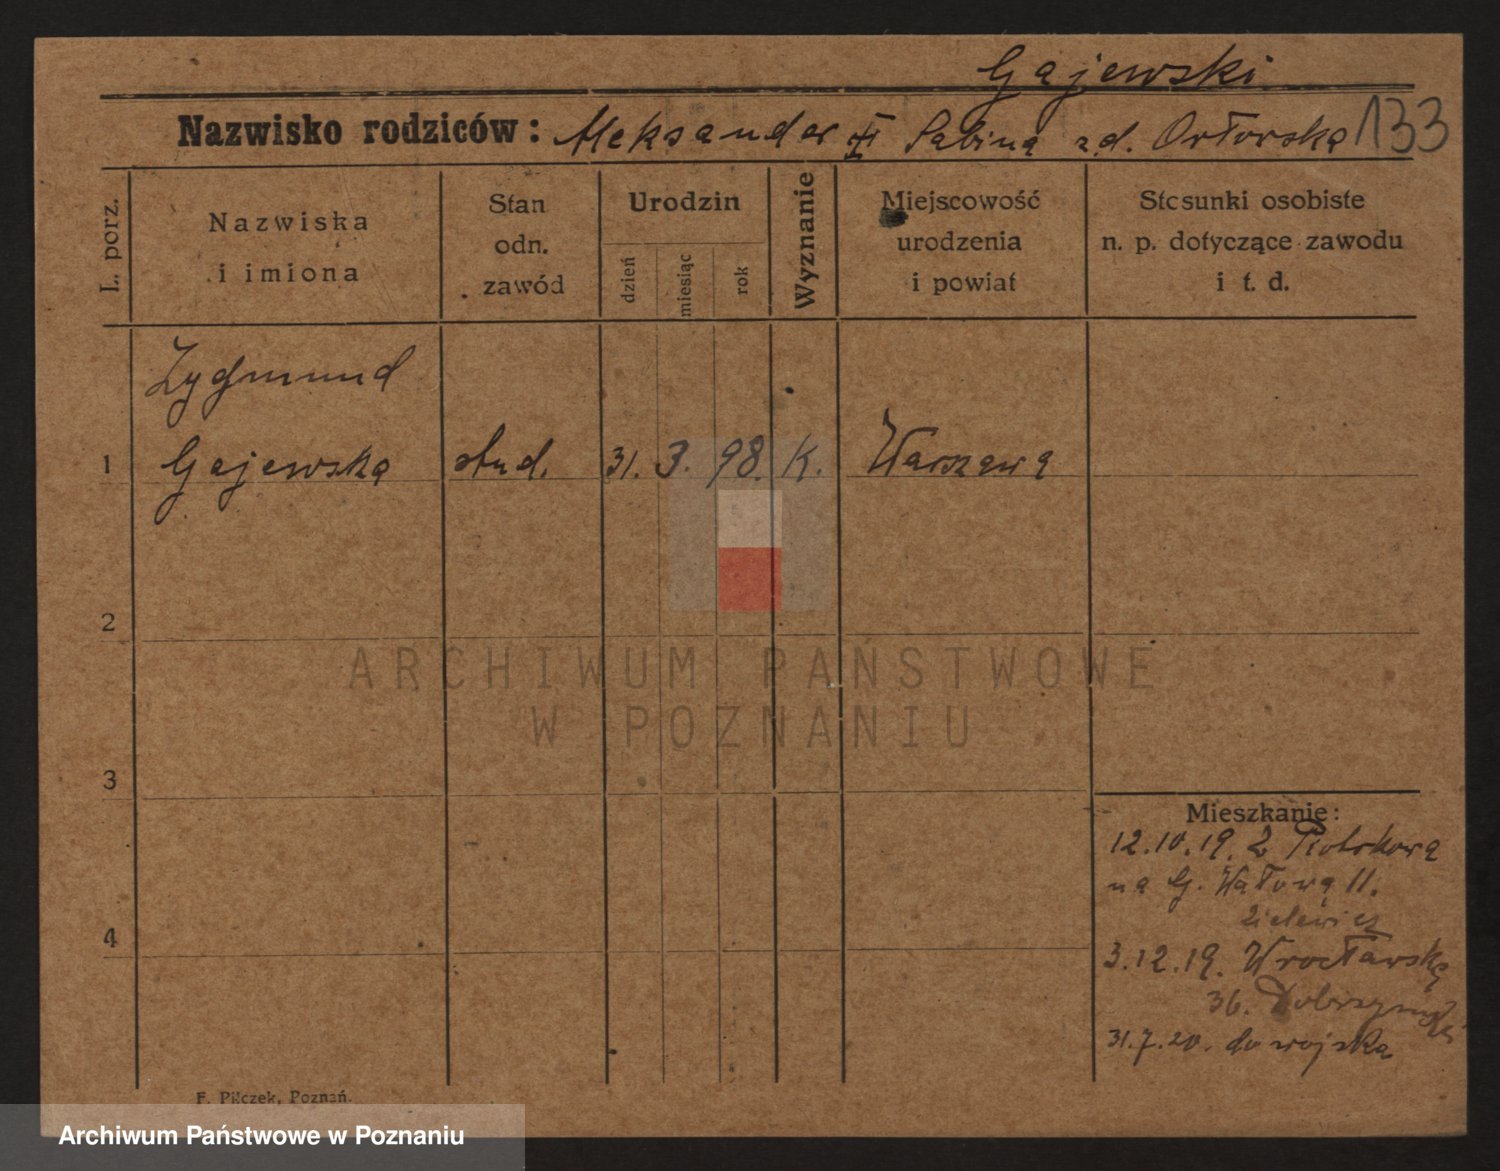 Gajewski
Nazwisko rodziców: Aleksander Sabina z d. Orłowska 133
L. porz.
Nazwiska
i imiona
Stan
odn.
zawód
Urodzin
dzień
miesiąc
rok
Wyznanie
Miejscowość
urodzenia
i powiat
Stosunki osobiste
n. p. dotyczące zawodu
i t. d.
Zygmund
1 Gajewska stud. 31. 3. 98. K. Warszawa
2
3
4
ARCHIWUM PAŃSTWOWE
W POZNANIU
Mieszkanie:
12.10.19. Z Piotrkowa
na G. Wałowa 11.
3.12.19. Wrocławska
36.
31.7.20. do wojska
F. Pilczek, Poznań.
Archiwum Państwowe w Poznaniu